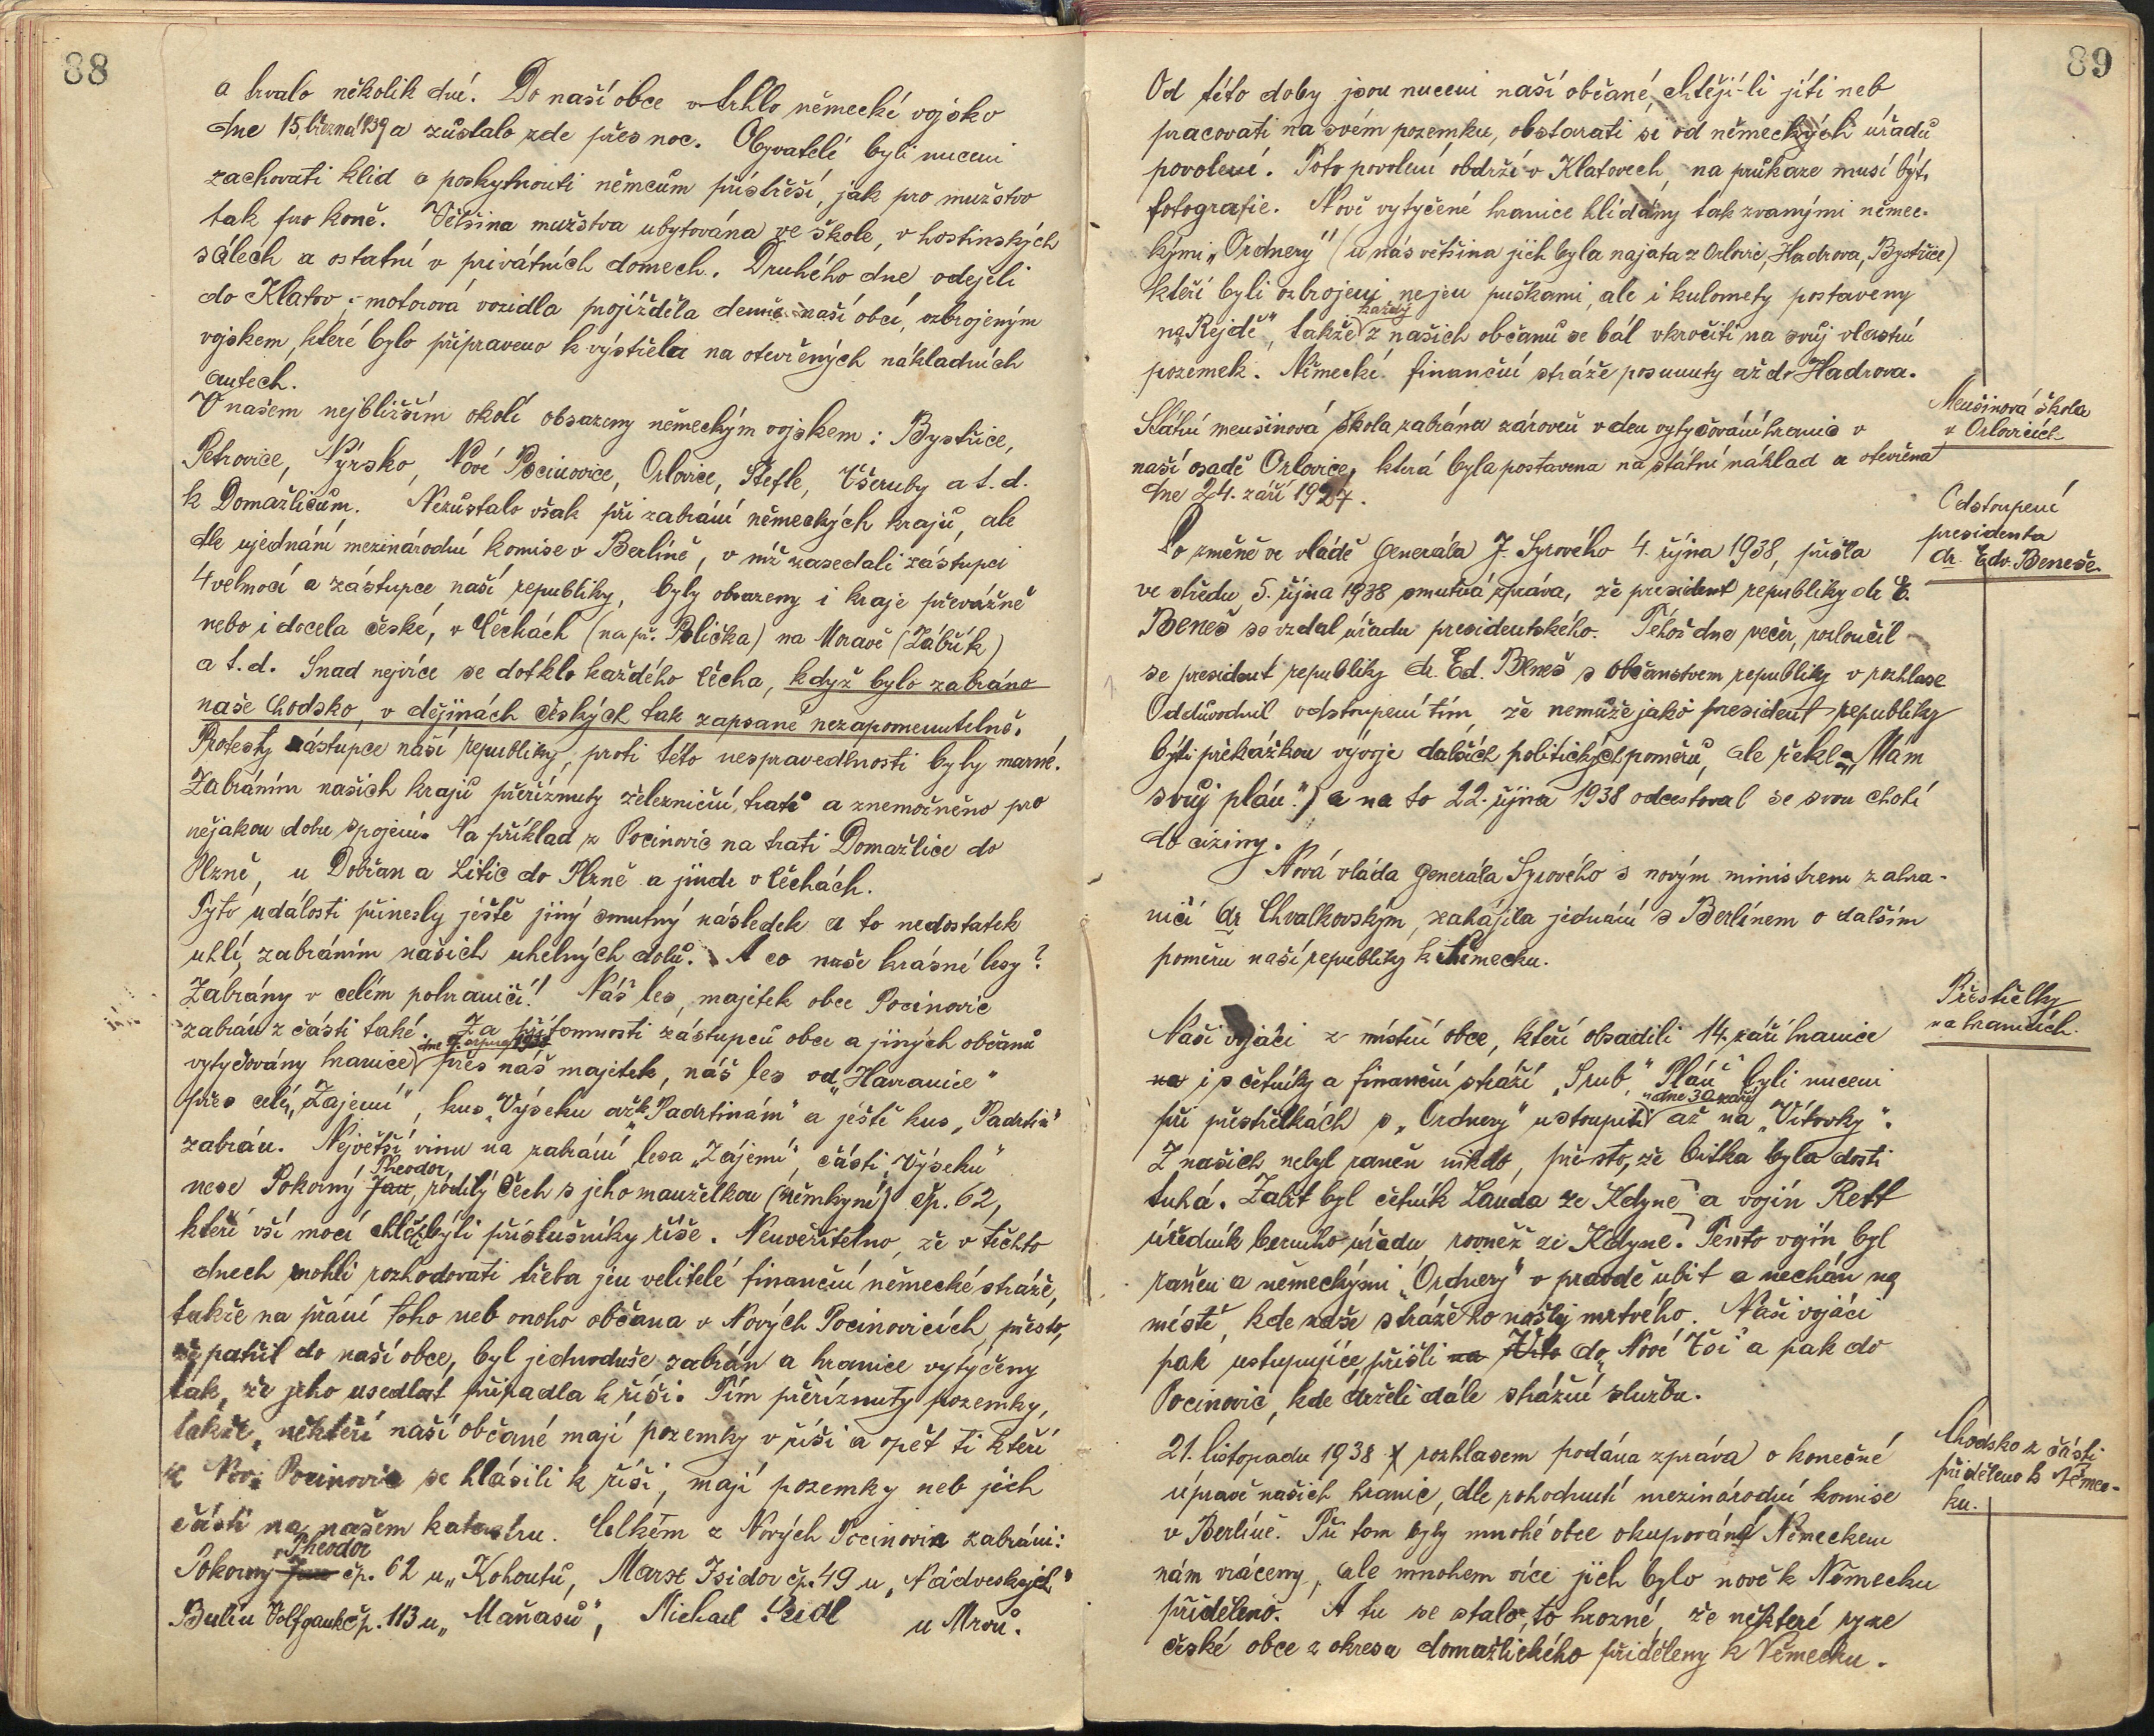 88
a trvalo několik dní. Do naší obce vtrhlo německé vojsko
dne 15. března 1939 a zůstalo zde přes noc. Obyvatelé byli nuceni
zachovati klid a poskytnouti němcům přístřeší, jak pro mužstvo
tak pro koně. Většina mužstva ubytována ve škole, v hostinských
sálech a ostatní v privátních domech. Druhého dne odejeli
do Klatov; motorová vozidla projížděla denně naší obcí, ozbrojeným
vojskem, které bylo připraveno k výstřelu na otevřených nákladních
autech.
V našem nejbližším okolí obsazeny německým vojskem: Bystřice,
Petrovice, Nýrsko, Nové Pocinovice, Orlovice, Štefle, Všeruby a t. d.
k Domažlicům. Nezůstalo však při zabrání německých krajů, ale
dle ujednání mezinárodní komise v Berlíně, v níž zasedali zástupci
4 velmocí a zástupce naší republiky, byly obsazeny i kraje převážně
nebo i docela české, v Čechách (na př. Polička) na Moravě (Zábřík)
a t. d. Snad nejvíce se dotklo každého čecha, když bylo zabráno
naše Chodsko, v dějinách českých tak zapsané nezapomenutelně.
Protesty zástupce naší republiky, proti této nespravedlnosti byly marné.
Zabráním našich krajů přeříznuty železniční tratě a znemožněno pro
nějakou dobu spojení. Na příklad z Pocinovic na trati Domažlice do
Plzně, u Dobřan a Litic do Plzně a jinde v Čechách.
Tyto události přinesly ještě jiný smutný následek a to nedostatek
uhlí, zabráním našich uhelných dolů. A co naše krásné lesy?
Zabrány v celém pohraničí! Náš les, majetek obce Pocinovic
zabrán z části také. Za přítomnosti zástupců obce a jiných občanů
vytyčovány hranice přes náš majetek, náš les od „Havranice“
přes celé „Zájemí“, kus „Výseku až k „Padrtinám“ a ještě kus „Padrtin“
zabrán. Největší vinu na zabrání lesa „Zájemí“, části „Výseku“
nese Pokorný Jan Theodor, rodilý Čech s jeho manželkou (němkyní) čp. 62,
kteří vší mocí chtěli býti příslušníky říše. Neuvěřitelno, že v těchto
dnech mohli rozhodovati třeba jen velitelé finanční německé stráže,
takže na přání toho neb onoho občana v Nových Pocinovicích, přesto,
že patřil do naší obce, byl jednoduše zabrán a hranice vytýčeny
tak, že jeho usedlost připadla k říši. Tím přeříznuty pozemky,
takže, někteří naší občané mají pozemky v říši a opět ti kteří
z Nov. Pocinovic se hlásili k říši, mají pozemky neb jich
části na našem katastru. Celkem z Nových Pocinovic zabráni:
Pokorný Jan Theodor čp. 62 u „Kohoutů, Marse Isidor čp. 49 u „Nádveských“
Bulin Volfgank čp. 113 u „Maňasů“, Michael Seidl u Mrvů.
89
Od této doby jsou nuceni naší občané, chtějí-li jíti neb
pracovati na svém pozemku, obstarati si od německých úřadů
povolení. Toto povolení obdrží v Klatovech, na průkaze musí být
fotografie. Nově vytyčené hranice hlídány tak zvanými němec-
kými „Ordnery“ (u nás většina jich byla najata z Orlovic, Hadrova, Bystřice)
kteří byli ozbrojeni nejen puškami, ale i kulomety postaveny
na „Rejdě“, takže každý z našich občanů se bál vkročiti na svůj vlastní
pozemek. Německé finanční stráže posunuty až do Hadrova.
Menšinová škola
v Orlovicích
Státní menšinová škola zabrána zároveň v den vytyčování hranic v
naší osadě Orlovice, která byla postavena na státní náklad a otevřena
dne 24. září 1927.
Odstoupení
presidenta
dr. Edv. Beneše.
Po změně ve vládě Generála J. Syrového 4. října 1938, přišla
ve středu, 5. října 1938 smutná zpráva, že president republiky dr E.
Beneš se vzdal úřadu presidentského. Téhož dne večer, rozloučil
se president republiky dr. Ed. Beneš s občanstvem republiky v rozhlase
Oddůvodnil odstoupení tím, že nemůže jako president republiky
býti překážkou vývoje dalších politických poměrů, ale řekl: „Mám
svůj plán.“) a na to 22. října 1938 odcestoval se svou chotí
do ciziny.
Nová vláda Generála Syrového s novým ministrem zahra-
ničí dr Chvalkovským, zahájila jednání s Berlínem o dalším
poměru naší republiky k Německu.
Přestřelky
na hranicích.
Naši vojáci z místní obce, kteří obsadili 14. září hranice
na i s četníky a finanční stráží „Srub,“ „Pláň“ byli nuceni
při přestřelkách s „Ordnery“ ustoupiti dne 30. září až na „Vítovky“.
Z našich nebyl raněn nikdo, přesto, že bitka byla dosti
tuhá. Zabit byl četník Lauda ze Kdyně a vojín Rett
úředník berního úřadu, rovněž ze Kdyně. Tento vojín byl
raněn a německými „Ordnery“ v pravdě ubit a nechán na
místě, kde naše stráže ho našly mrtvého. Naši vojáci
pak ustupujíce, přišli na Víto do „Nové Vsi“ a pak do
Pocinovic, kde drželi dále strážní službu.
Chodsko z části
přiděleno k Němec-
ku.
21. listopadu 1938 rozhlasem podána zpráva o konečné
úpravě našich hranic, dle rohodnutí mezinárodní komise
v Berlíně. Při tom byly mnohé obce okupovány Německem
nám vráceny, ale mnohem více jich bylo nově k Německu
přiděleno. A tu se stalo, to hrozné, že některé ryze
české obce z okresu domažlického přiděleny k Německu.